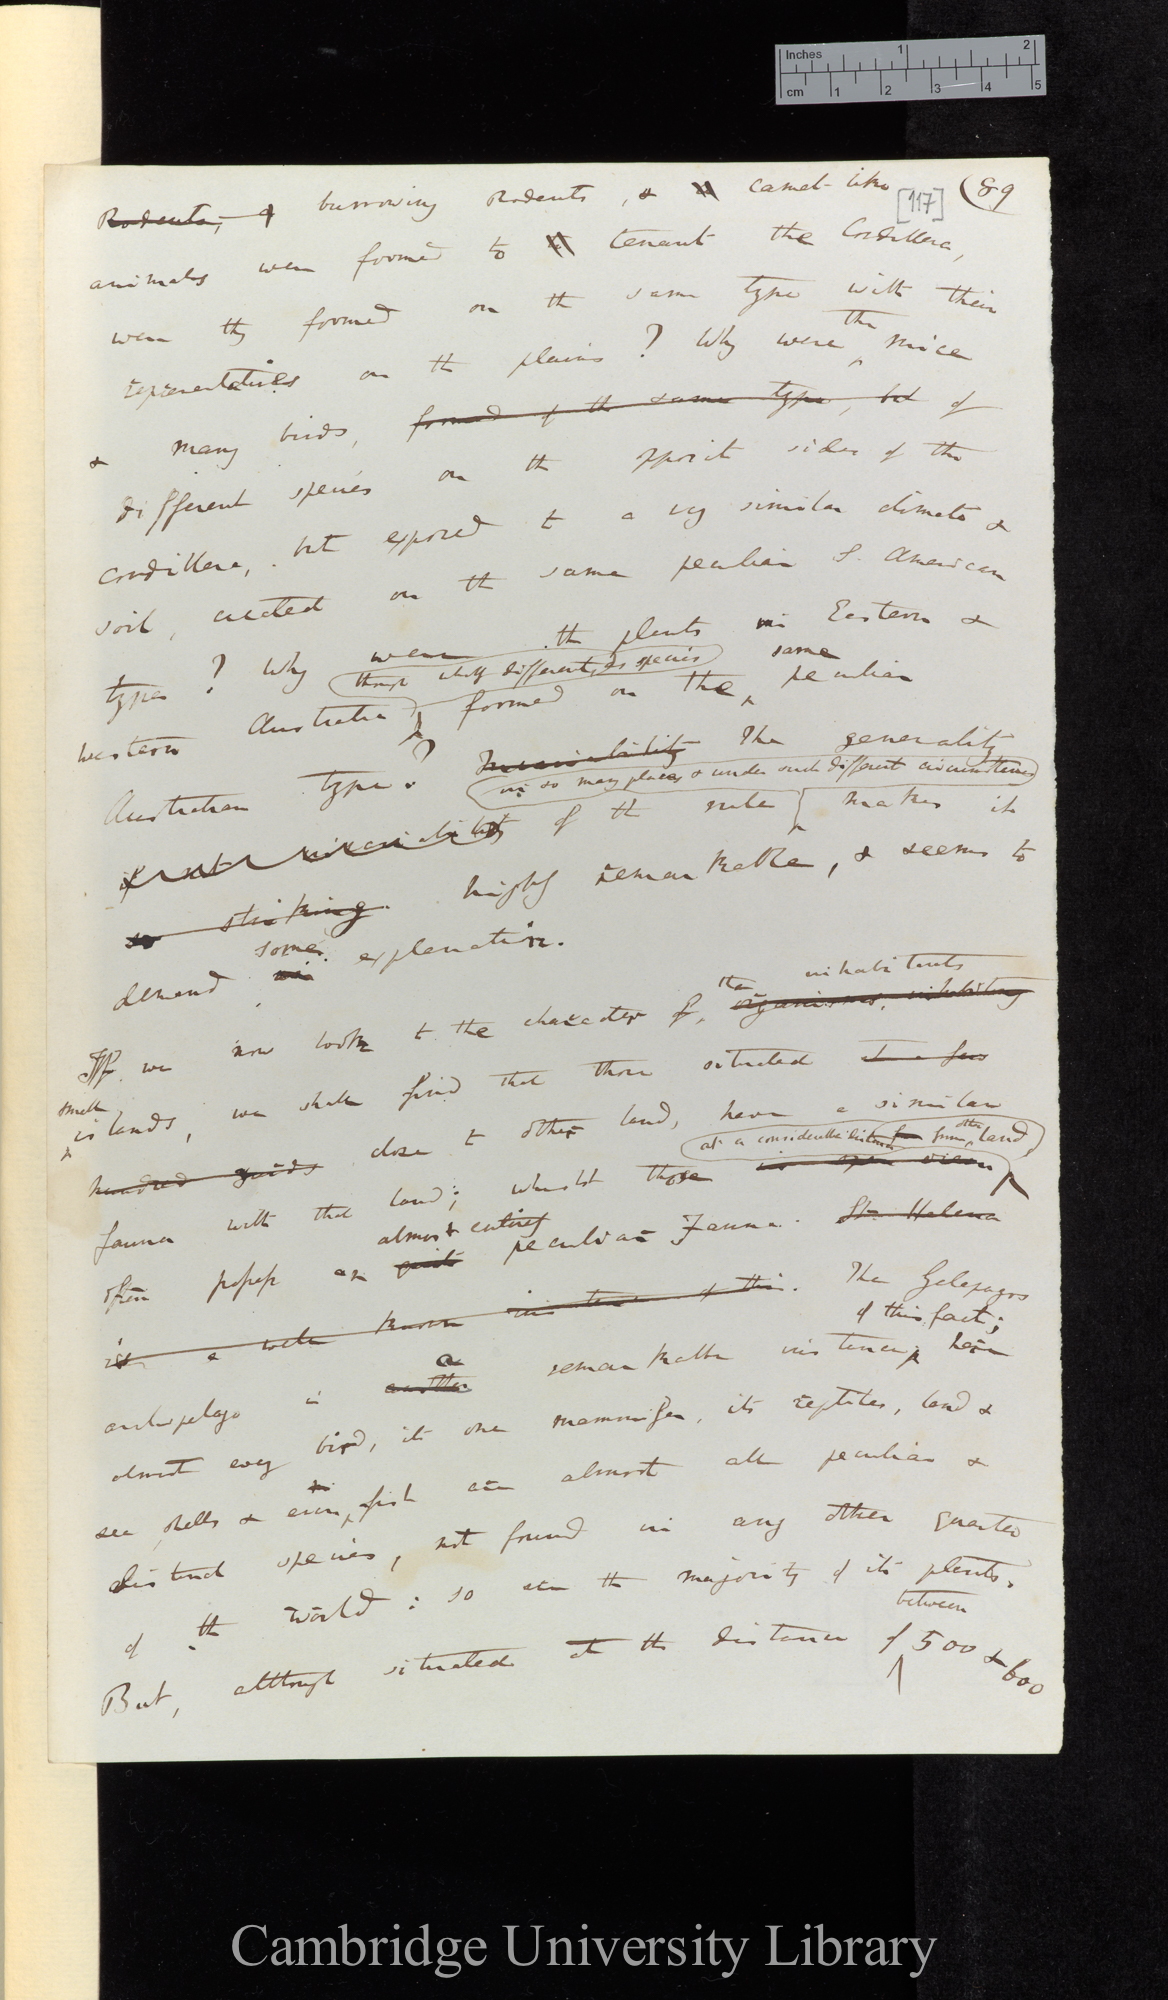 Inches 1 2
cm 1 2 3 4 5
(89
[117]
Rodents, & burrowing Rodents, & camel-like
animals were formed to tenant the Cordillera,
were thy formed on the same type with their
representatives on the plains? Why were the mice
& many birds, formed of the same type, but of
different species on the opposite sides of the
Cordillera, but exposed to a very similar climate &
soil, created on the same peculiar S. American
type? Why were the plants in Eastern &
though wholly different, as species
same
Western Australia, formed on the peculiar
Australian type? The generality
in so many places & under such different circumstances
of the rule makes it
so striking highly remarkable, & seems to
some
demand explanation.
the inhabitants
If we now look to the character of organisms, inhabiting
small
islands, we shall find that those situated
hundred close to other land, have a similar
at a considerable distance from other land
fauna with that land; whilst those in open ocean
almost entirely
often possess an quite peculiar Fauna. St. Helena
is a well known instance of this. The Galapagos
of this fact;
a
archipelago is another remarkable instance; here
almost every bird, its one mammifer, its reptiles, land &
sea shells & even fish are almost all peculiar &
distinct species, not found in any other quarter
of the world: so are the majority of its plants.
between
But, although situated at the distance of 500 & 600
Cambridge University Library